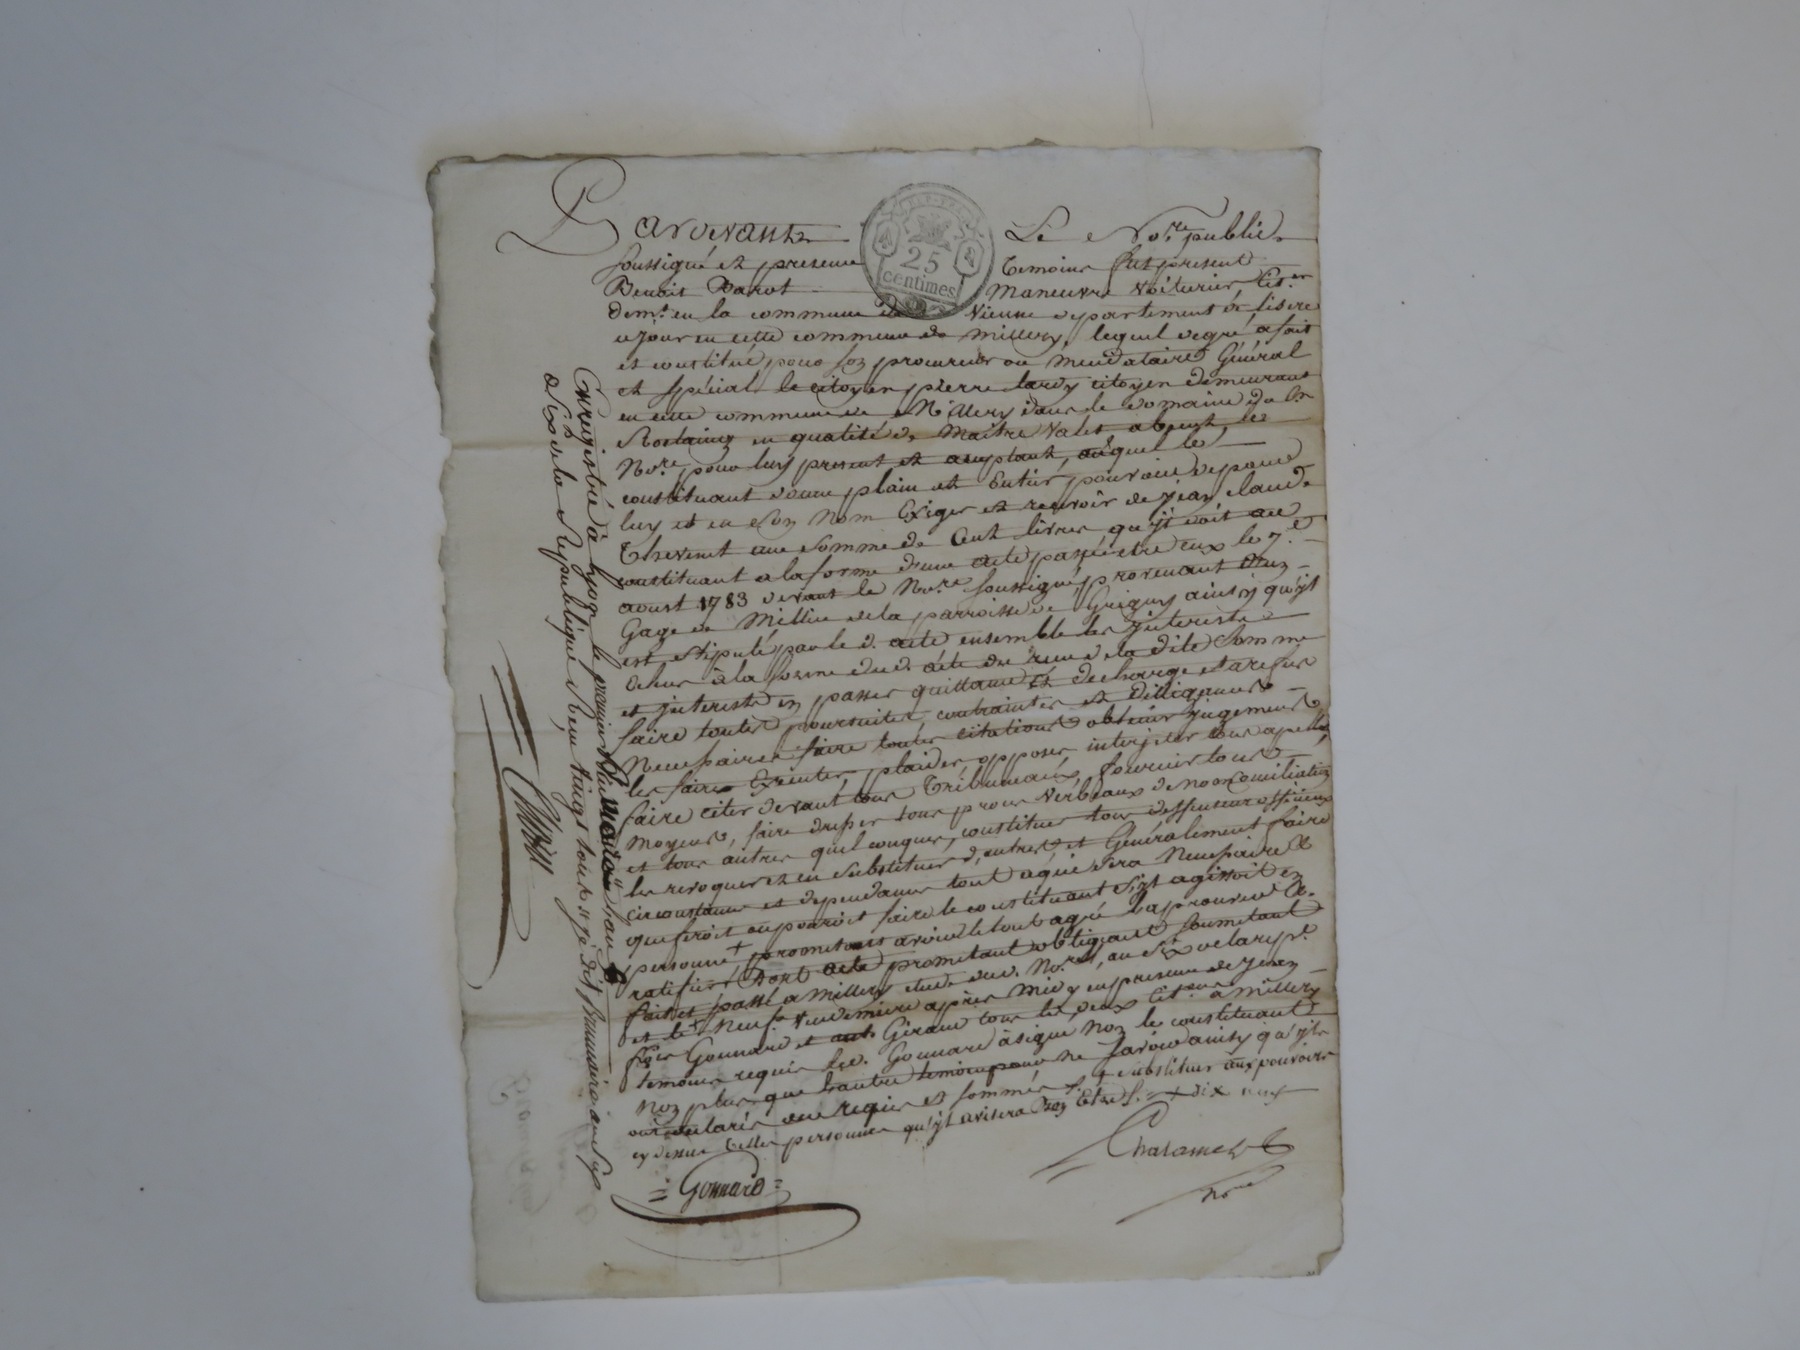 Pardevant Le No.re public
soussigné et presence temoins fut present
Benoit Barot manœuvre voiturier, Cit.en
dem.t en la commune de Vienne departement de lisere
a jour en cette commune de millery, lequel de gré a fait
et constitué pour son procureur ou mendataire Général
et spécial le citoyen pierre lardy citoyen demeurant
en cette commune de Millery dans le domaine du Cn
en qualité de Maître valet absent, le
No.re pour luy present et acceptant, auquel le
constituant donne plain et Entier pouvoir de pour
luy et en son nom Exiger et recevoir de jean claude
Thevenet une somme de Cent livres qu'jl doit au
constituant a la forme d'une acte passé entre eux le 7.e
aoust 1783 devant le No.re soussigné, provenant d'un
Gage de Millie de la parroisse de Grigny ainsy qu'jl
est stipulé par le d. acte ensemble les jnterests
Echus à la forme du d. acte du reçu de la dite somme
et jnterests en passer quittance et decharge et a refus
faire toutes poursuites, contraintes et dilligences
Necessaires faire toutes citations obtenir jugements
les faire Executer, plaider, opposer, interjeter tous apells,
faire citer devant tous Tribuneaux, fournir tous
moyens, faire dresser tous procès verbeaux de non conciliation
et tous autres quelconques, constituer tous deffenseurs officieux
les revoquer et en substituer d'autres, et Généralement faire
circonstances et dependances tout ce qui sera Necessaire &
que feroit ou pouroit faire le constituant s'jl agissoit en
personne + promettant avoir le tout agréé l'approuver &
ratiffier Dont acte promettant obligeant soumettant
fait et passé a millery étude du d. No.re, an six de la rep.e
et le neuf vendemiaire après midy en presence de jean
f.ois Gonnard et ant. Giraud tous les deux Cit.ens à Millery
temoins requis led. Gonnard à signé Non le constituant
Non plus que l'autre temoin pour ne savoir ainsy qu'jls
ont declaré de ce requis et sommés + substituer aux pouvoirs
cy dessus telles personnes qu'jl avisera Bon Etre
= Gonnard =
Chatanier
No.re
Enregistré à Lyon le premier
de la Republique Reçu vingt sous